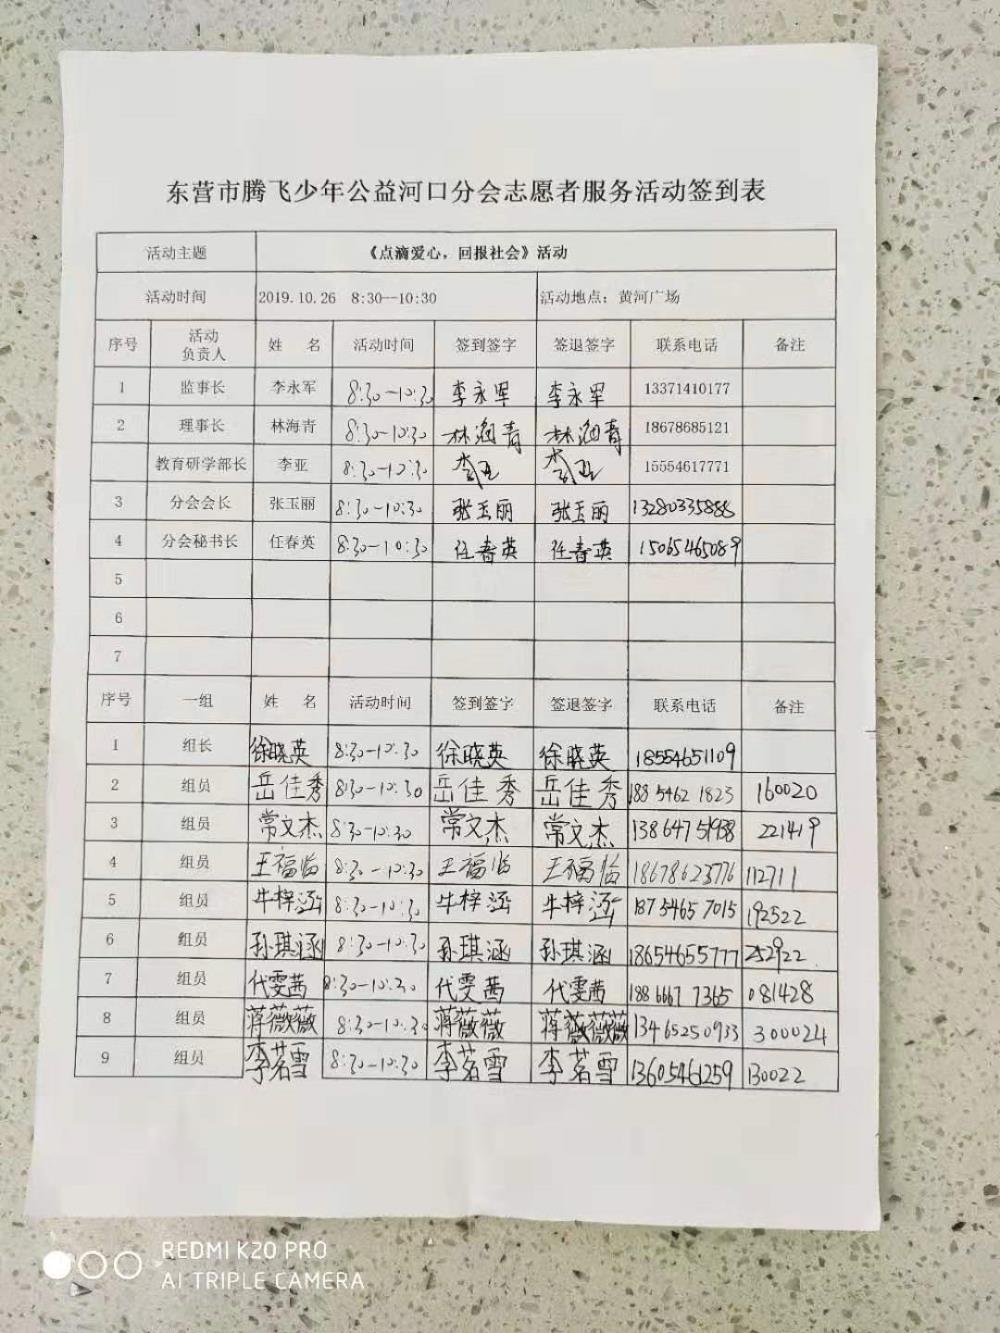 东营市腾飞少年公益河口分会志愿者服务活动签到表
活动主题 《点滴爱心，回报社会》活动
活动时间 2019.10.26 8:30--10:30 活动地点：黄河广场
序号 活动负责人 姓 名 活动时间 签到签字 签退签字 联系电话 备注
1 监事长 李永军 8:30-10:30 李永军 李永军 13371410177
2 理事长 林海青 8:30-10:30 林海青 林海青 18678685121
教育研学部长 李亚 8:30-10:30 李亚 李亚 15554617771
3 分会会长 张玉丽 8:30-10:30 张玉丽 张玉丽 13280335888
4 分会秘书长 任春英 8:30-10:30 任春英 任春英 15065465089
5
6
7
序号 一组 姓 名 活动时间 签到签字 签退签字 联系电话 备注
1 组长 徐晓英 8:30-10:30 徐晓英 徐晓英 18554651109
2 组员 岳佳秀 8:30-10:30 岳佳秀 岳佳秀 188 5462 1823 160020
3 组员 常文杰 8:30-10:30 常文杰 常文杰 221419
4 组员 王福临 8:30-10:30 王福临 王福临 18678623776 112711
5 组员 牛梓涵 8:30-10:30 牛梓涵 牛梓涵 187 5465 7015 192522
6 组员 孙琪涵 8:30-10:30 孙琪涵 孙琪涵 18654655777 252922
7 组员 代雯茜 8:30-10:30 代雯茜 代雯茜 188 6667 7365 081428
8 组员 蒋薇薇 8:30-10:30 蒋薇薇 蒋薇薇薇 13465250933 300024
9 组员 李茗雪 8:30-10:30 李茗雪 李茗雪 13605461259 130022
REDMI K20 PRO
AI TRIPLE CAMERA